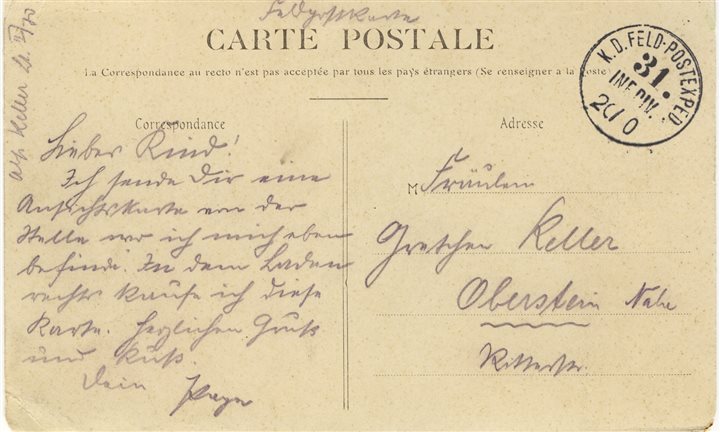 Feldpostkarte
CARTE POSTALE
La Correspondance au recto n'est pas acceptée par tous les pays étrangers (Se renseigner a la Poste)
K.D. FELD-POSTEXPED
31.
INF. DIV.
Keller
Correspondance
Liebes Kind!
Ich sende Dir eine
Ansichtskarte von der
Stelle wo ich mich eben
befinde. In dem Laden
rechts kaufe ich diese
Karte. Herzlichen Gruß
und Kuß.
Dein
Adresse
M
Fräulein
Gretchen Keller
Oberstein Nahe
Ritterstr.